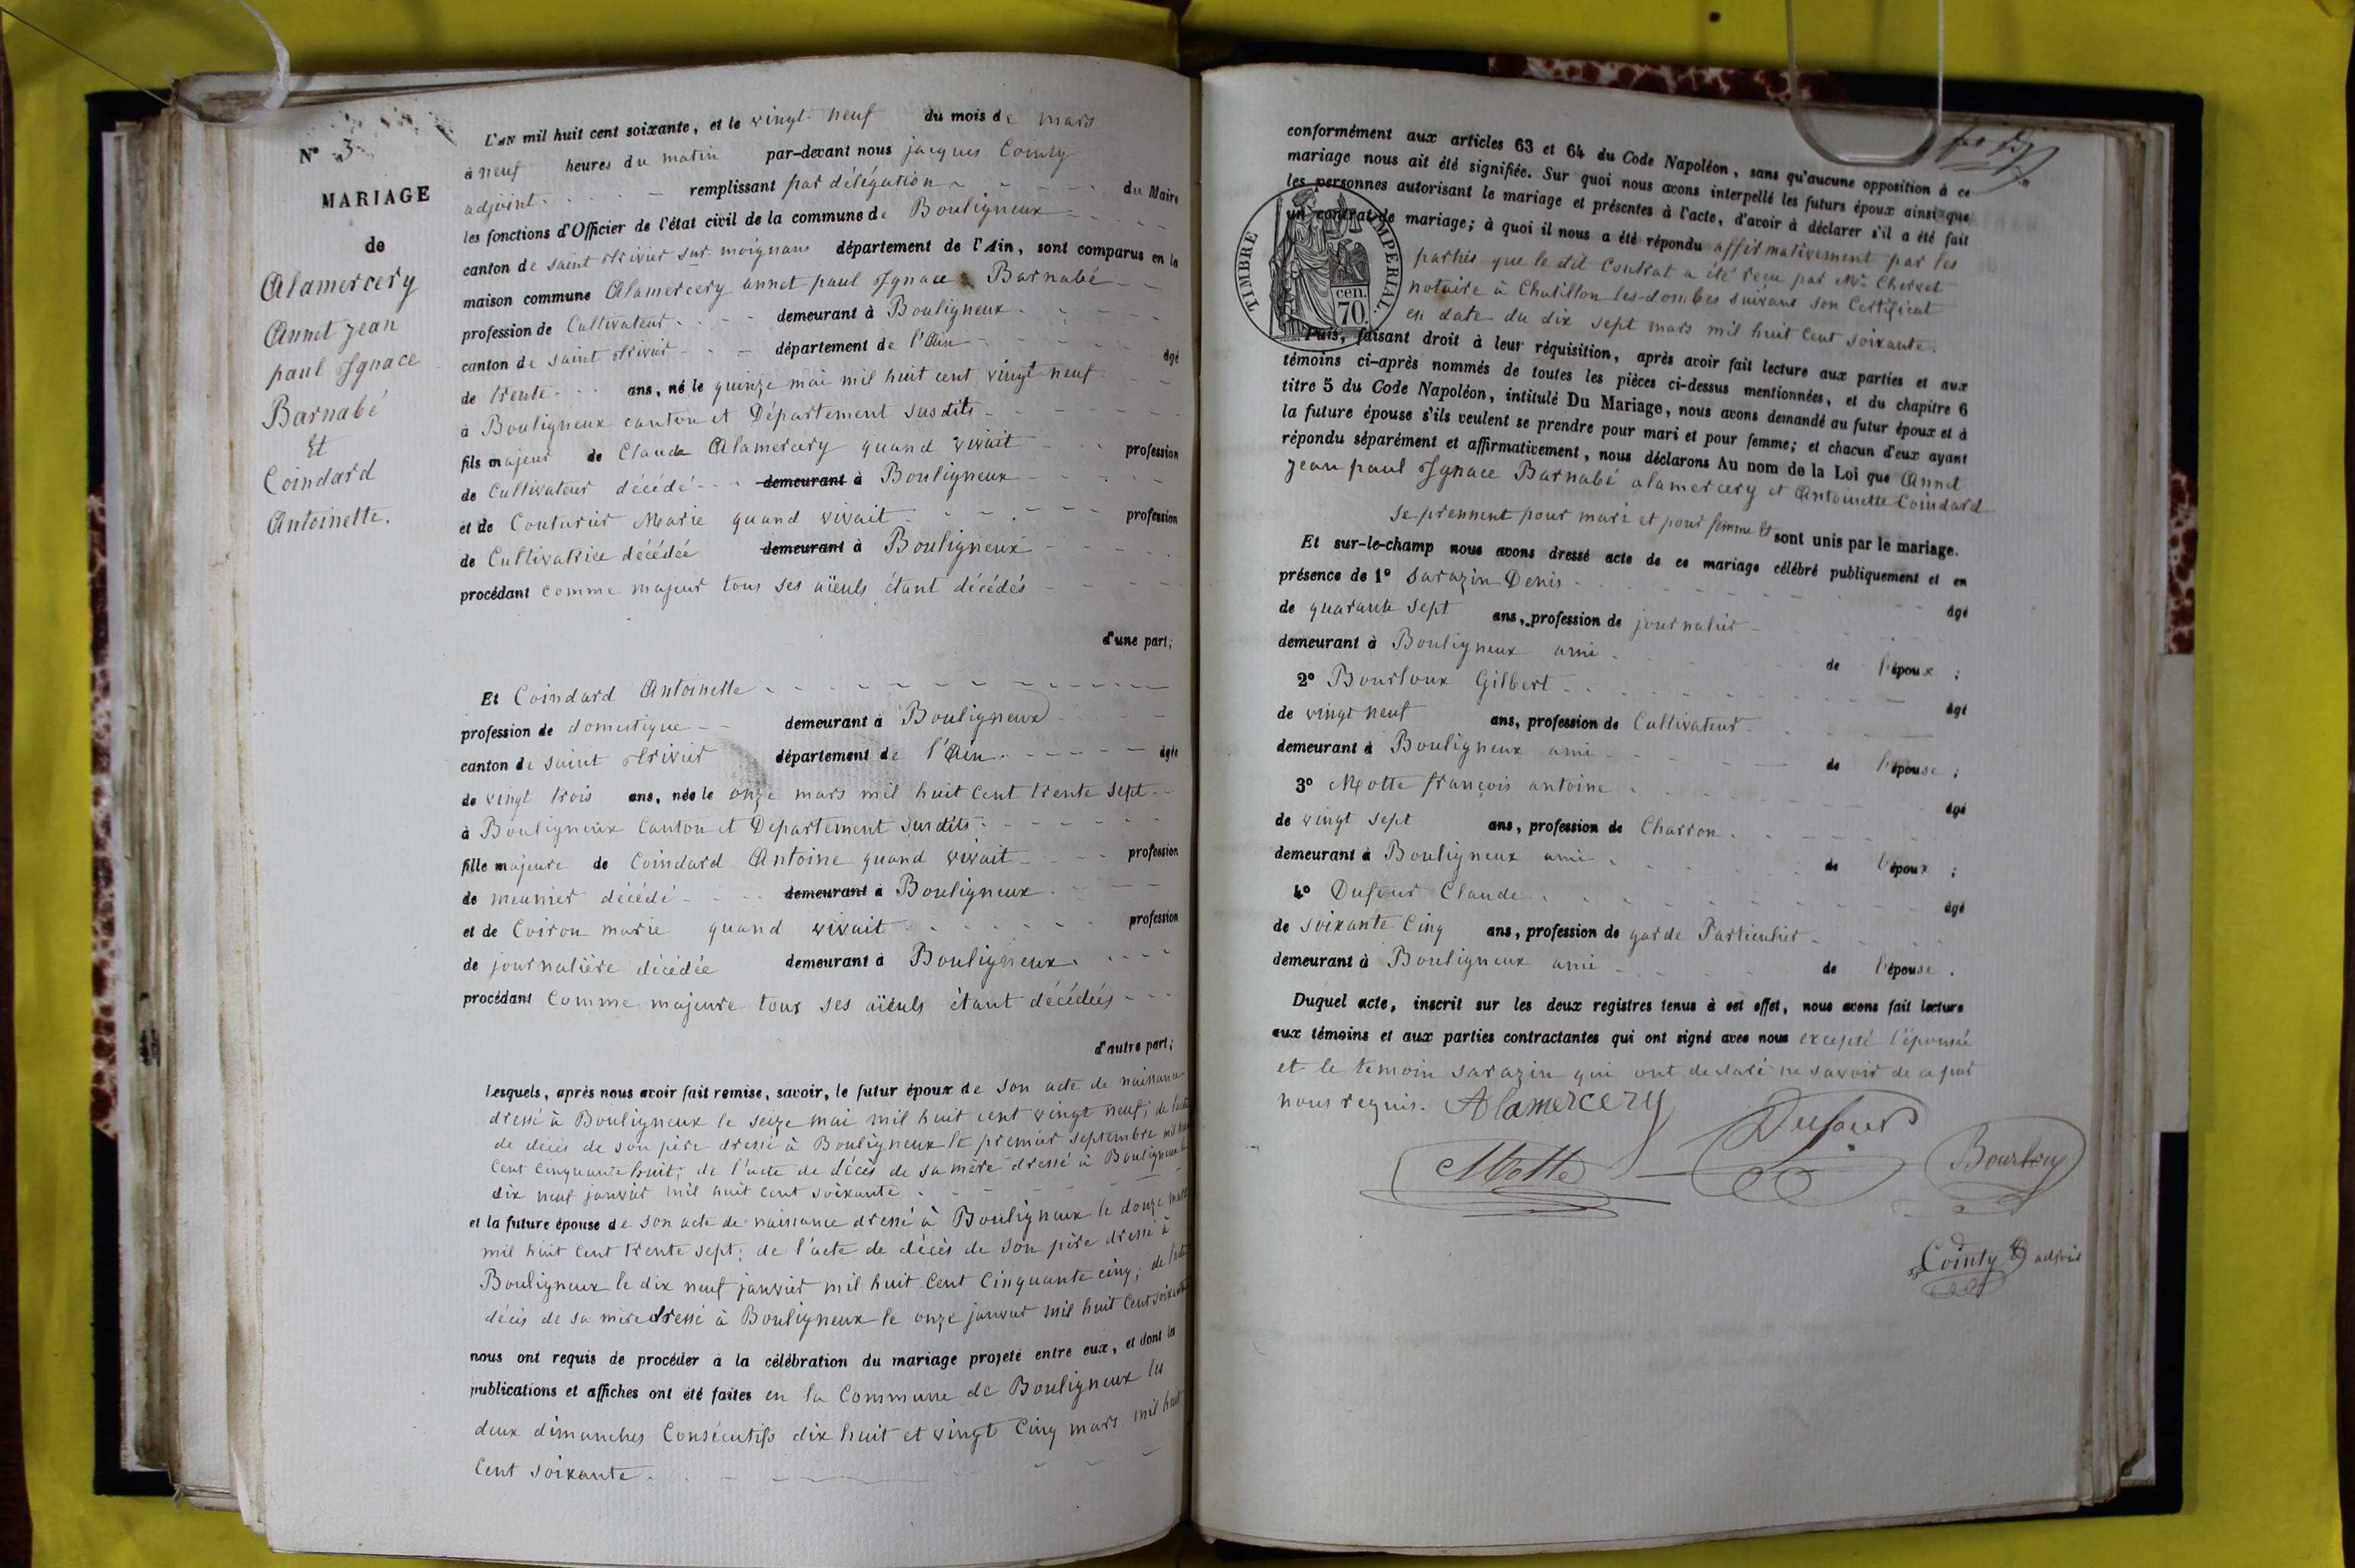 N° 3
MARIAGE
de
Alamercery
Annet Jean
paul Ignace
Barnabé
Et
Coindard
Antoinette.
L'AN mil huit cent soixante, et le vingt neuf du mois de mars
à neuf heures du matin par-devant nous jacques Cointy
adjoint remplissant par délégation du Maire
les fonctions d'Officier de l'état civil de la commune de Bouligneux
canton de saint trivier sur moignans département de l'Ain, sont comparus en la
maison commune Alamercery annet paul Ignace Barnabé
profession de Cultivateur demeurant à Bouligneux
canton de saint trivier département de l'Ain âgé
de trente ans, né le quinze mai mil huit cent vingt neuf
à Bouligneux canton et Département susdits
fils majeur de Claude Alamercery quand vivait profession
de Cultivateur décédé demeurant à Bouligneux
et de Couturier Marie quand vivait profession
de Cultivatrice décédée demeurant à Bouligneux
procédant comme majeur tous ses aïeuls étant décédés
d'une part;
Et Coindard Antoinette
profession de domestique demeurant à Bouligneux
canton de saint trivier département de l'Ain âgée
de vingt trois ans, née le onze mars mil huit Cent trente sept
à Bouligneux Canton et Departement susdits
fille majeure de Coindard Antoine quand vivait profession
de meunier décédé demeurant à Bouligneux
et de Coiron marie quand vivait profession
de journalière décédée demeurant à Bouligneux
procédant Comme majeure tous ses aïeuls étant décédés
d'autre part;
Lesquels, après nous avoir fait remise, savoir, le futur époux de son acte de naissance
dressé à Bouligneux le seize mai mil huit cent vingt neuf; de l'acte
de décès de son père dressé à Bouligneux le premier septembre mil huit
Cent Cinquante huit; de l'acte de décès de sa mère dressé à Bouligneux le
dix neuf janvier mil huit Cent soixante
et la future épouse de son acte de naissance dressé à Bouligneux le douze mars
mil huit Cent trente sept; de l'acte de décès de son père dressé à
Bouligneux le dix neuf janvier mil huit Cent Cinquante cinq; de l'acte
décès de sa mère dressé à Bouligneux le onze janvier mil huit Cent soixante
nous ont requis de procéder à la célébration du mariage projeté entre eux, et dont les
publications et affiches ont été faites en la Commune de Bouligneux les
deux dimanches Consécutifs dix huit et vingt Cinq mars mil huit
Cent soixante
conformément aux articles 63 et 64 du Code Napoléon, sans qu'aucune opposition à ce
mariage nous ait été signifiée. Sur quoi nous avons interpellé les futurs époux ainsi que
les personnes autorisant le mariage et présentes à l'acte, d'avoir à déclarer s'il a été fait
un contrat de mariage; à quoi il nous a été répondu affirmativement par les
TIMBRE IMPERIAL.
cen.
70.
parties que le dit Contrat a été reçu par Me
notaire à Chatillon les-dombes suivant son Certificat
en date du dix sept mars mil huit Cent soixante.
Puis, faisant droit à leur réquisition, après avoir fait lecture aux parties et aux
témoins ci-après nommés de toutes les pièces ci-dessus mentionnées, et du chapitre 6
titre 5 du Code Napoléon, intitulé Du Mariage, nous avons demandé au futur époux et à
la future épouse s'ils veulent se prendre pour mari et pour femme; et chacun d'eux ayant
répondu séparément et affirmativement, nous déclarons Au nom de la Loi que Annet
Jean paul Ignace Barnabé alamercery et Antoinette Coindard
se prennent pour mari et pour femme Et sont unis par le mariage.
Et sur-le-champ nous avons dressé acte de ce mariage célébré publiquement et en
présence de 1° Sarazin Denis âgé
de quarante sept ans, profession de journalier
demeurant à Bouligneux ami de l'époux ;
2° Bourloux Gilbert âgé
de vingt neuf ans, profession de Cultivateur
demeurant à Bouligneux ami de l'épouse ;
3° Motte françois antoine âgé
de vingt sept ans, profession de Charron
demeurant à Bouligneux ami de l'époux ;
4° Dufour Claude âgé
de soixante Cinq ans, profession de garde Particulier
demeurant à Bouligneux ami de l'épouse.
Duquel acte, inscrit sur les deux registres tenus à cet effet, nous avons fait lecture
aux témoins et aux parties contractantes qui ont signé avec nous excepté l'épousée
et le temoin sarazin qui ont declaré ne savoir de ce par
nous requis. Alamercery
Dufour
Motte
Bourloux
Cointy adjoint